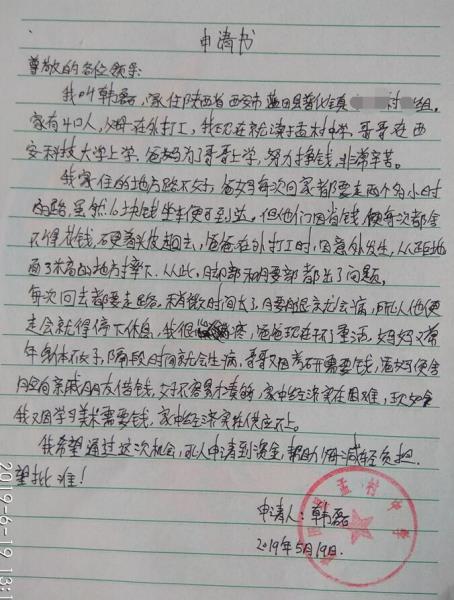 申请书
尊敬的各位领导:
我叫韩磊,家住陕西省西安市蓝田县普化镇 村 组.
家有4口人,父母在外打工,我现在就读于孟村中学,哥哥在西
安科技大学上学,爸妈为了哥哥上学,努力挣钱,非常辛苦。
我家住的地方路不好,爸妈每次回家都要走两个多小时
的路,虽然6块钱坐车便可到达。但他们因省钱,便每次都舍
不得花钱,硬着头皮赶回去,爸爸在外打工时,因意外发生,从距地
面3米高的地方摔下.从此,腿部和腰部都出了问题.
每次回去都要走路,稍微时间长了,腰腿就会痛,所以他便
走会就得停下休息,我很 心疼,爸爸现在干不了重活,妈妈又常
年身体不好,隔段时间就会生病,哥哥又因考研需要钱,爸妈便会
向亲戚朋友借钱,好不容易才凑够,家中经济实在困难,现如今
我又因学习美术需要钱,家中经济实在供应不上。
我希望通过这次机会,可以申请到资金,帮助 减轻负担.
望批准!
申请人:韩磊
2019年5月19日.
孟村中学
2019-6-19 13:1